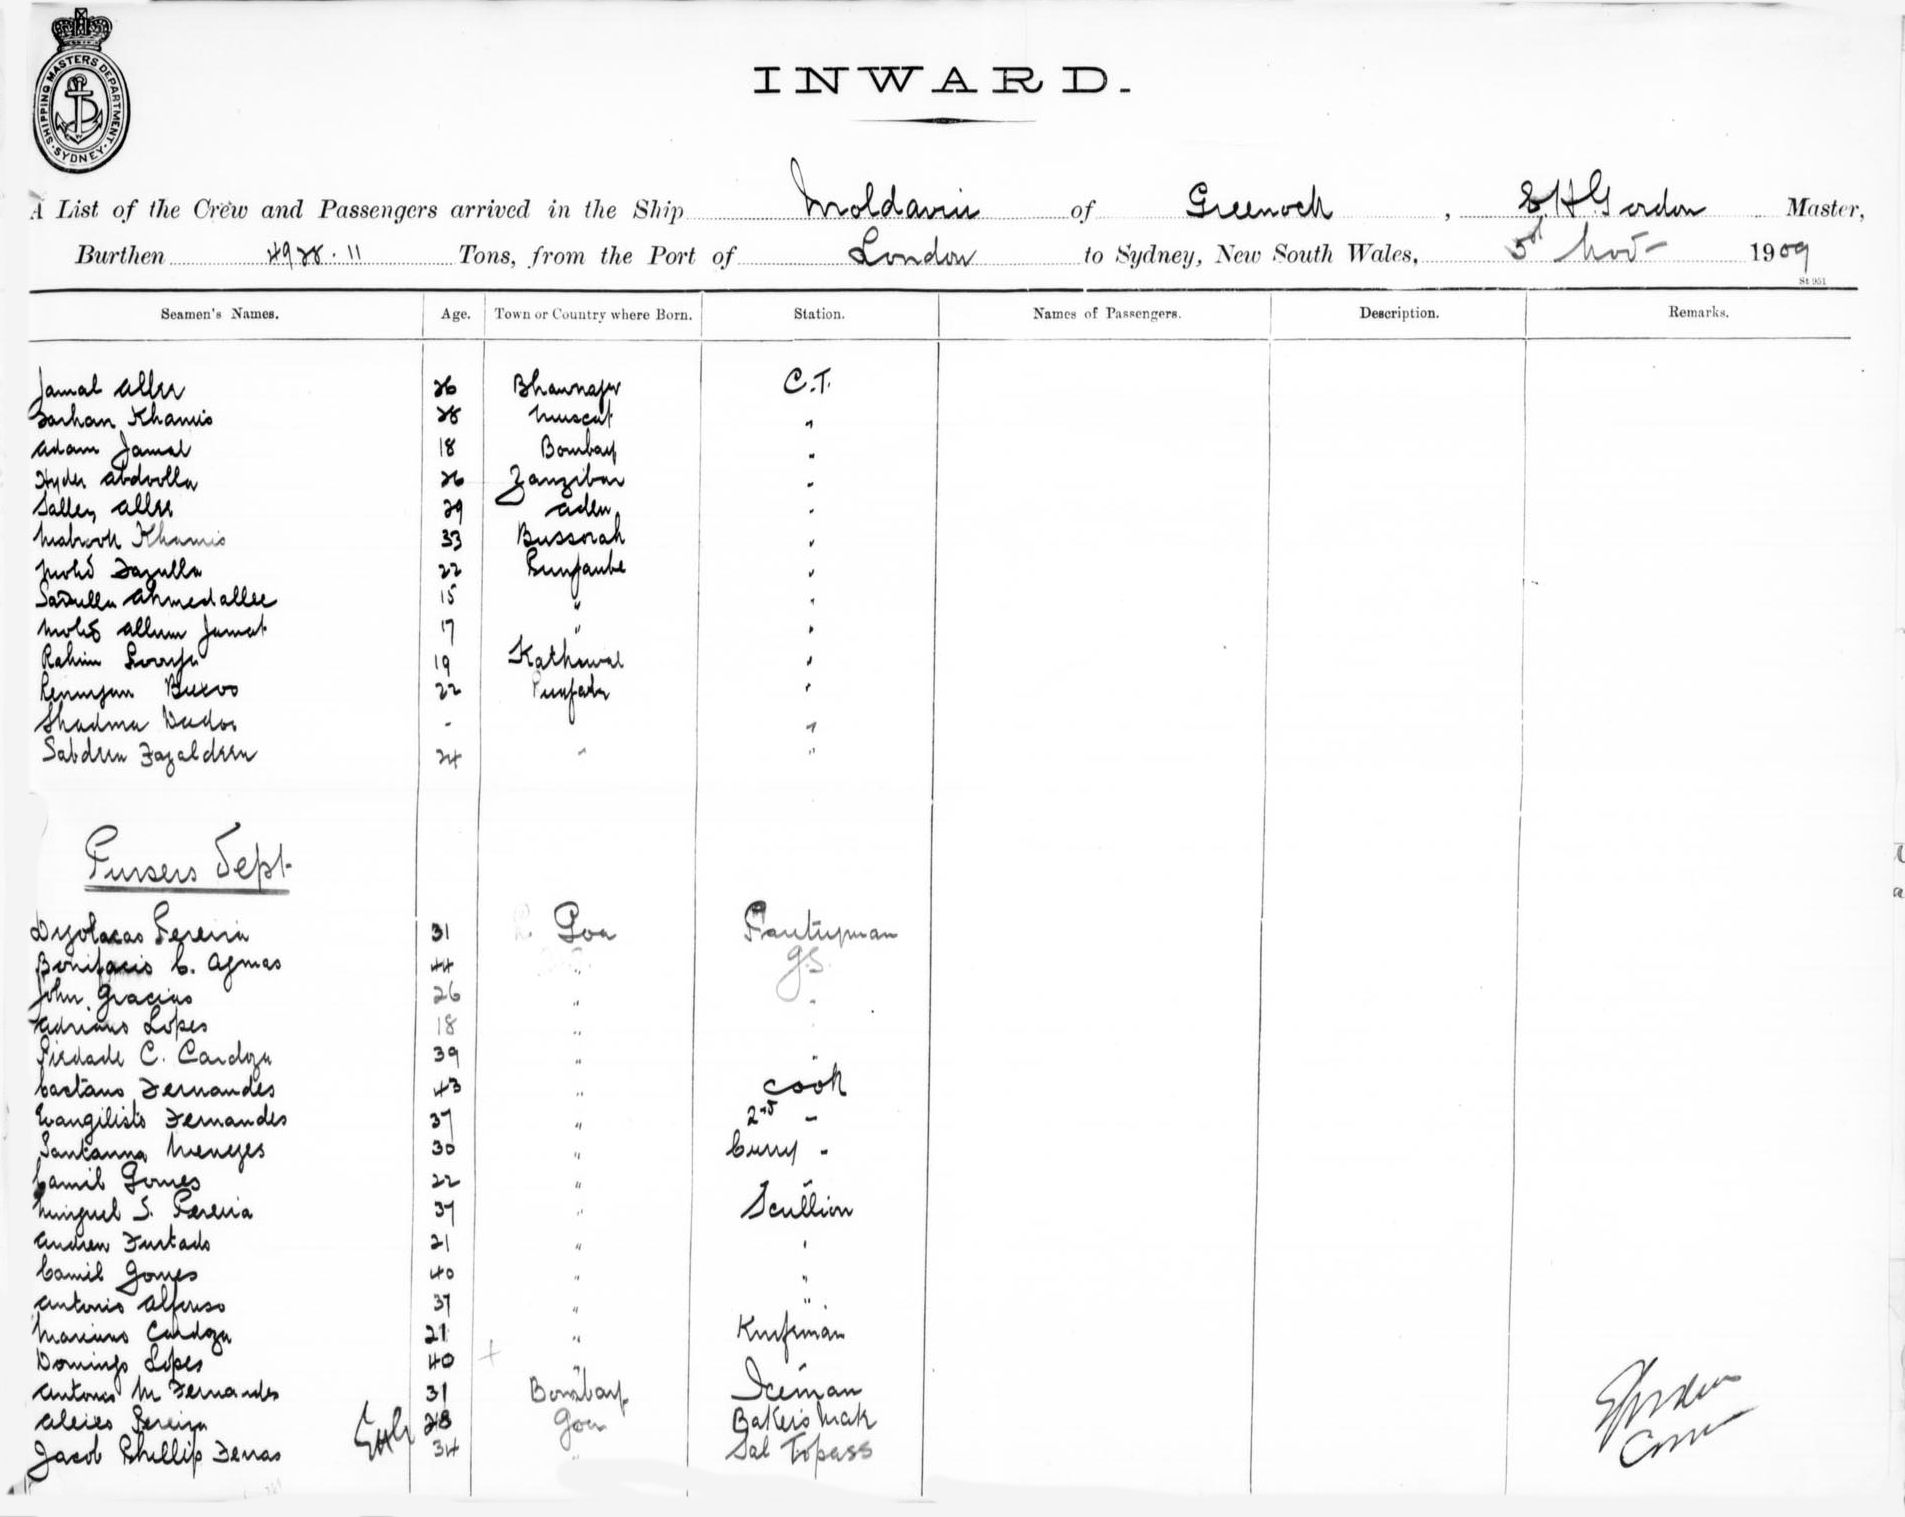 SHIPPING MASTERS DEPARTMENT. SYDNEY.
INWARD.
A List of the Crew and Passengers arrived in the Ship Moldavia of Greenock, E. H. Gordon Master,
Burthen 4928.11 Tons, from the Port of London to Sydney, New South Wales, 5th Nov 1909
St 951
Seamen's Names. Age. Town or Country where Born. Station. Names of Passengers. Description. Remarks.
Jamal Allee 26 Bhawnagur C.T.
Farhan Khamis 28 Muscat "
Adam Jamal 18 Bombay "
Hyder Abdoolla 26 Zanzibar "
Salley Allee 29 Aden "
Mabrook Khamis 33 Bussorah "
Mohd Fazulla 22 Punjaube "
Sadulla Ahmedallee 15 " "
Mohd Allum Jumat 17 " "
Rahim 19 Kathiwar "
Buxoo 22 "
Shadma Dadoo - "
Sabdeen Fazaldeen 24 " "
Pursers Dept.
Pereira 31 Goa Pantryman
Bonifacio C. 44 " G.S.
John Gracias 26 " "
Adriano Lopes 18 "
Piedade C. Cardoza 39 " "
Caetano Fernandes 43 " Cook
Evangilisto Fernandes 37 " 2nd "
Santanna Menezes 30 " Curry "
Camil Gomes 22 " "
Minguel S. Pereira 37 " Scullion
Andrew Furtado 21 " "
Camil Gomes 40 " "
Antonio Alfonso 37 " "
Mariano Cardoza 21 " Knifeman
Domingo Lopes 40 " "
Antonio M Fernandes 31 Bombay Iceman
Aleixes Pereira 28 Goa Bakers Mate
Jacob Phillip 34 " Sal Topass
EHG